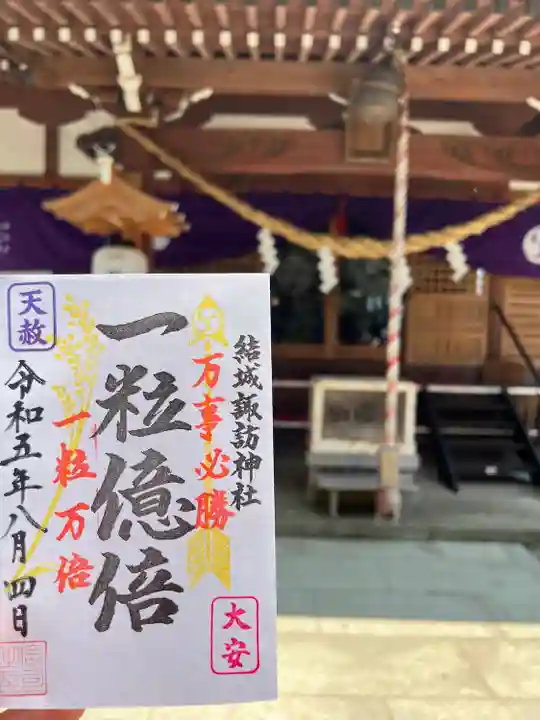 結城諏訪神社
万事必勝
一粒億倍
一粒万倍
天赦
令和五年八月四日
大安